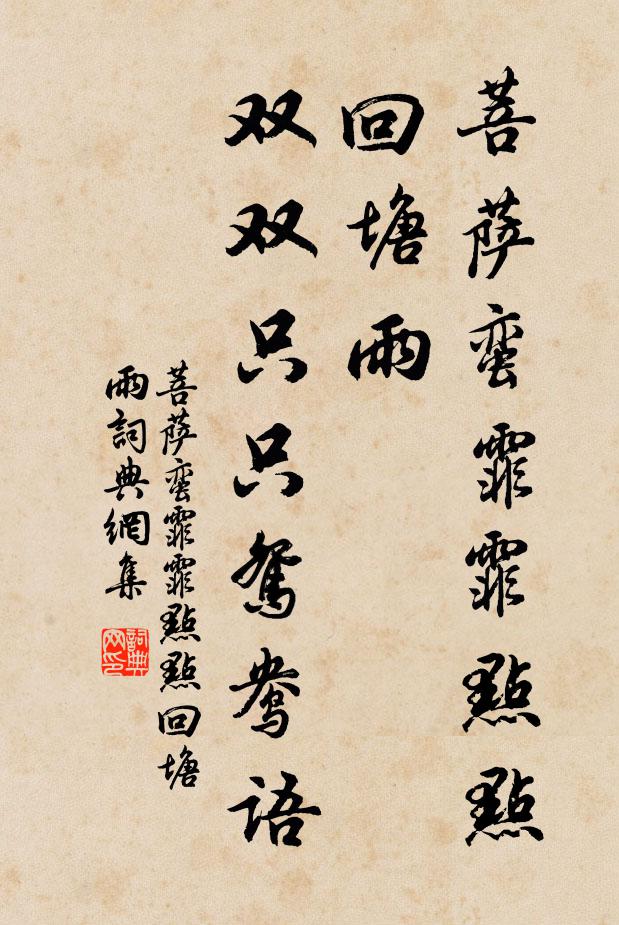 菩萨蛮霏霏點點
回塘雨
双双只只鸳鸯语
菩萨蛮霏霏點點回塘
雨詞典網集
詞典
网印